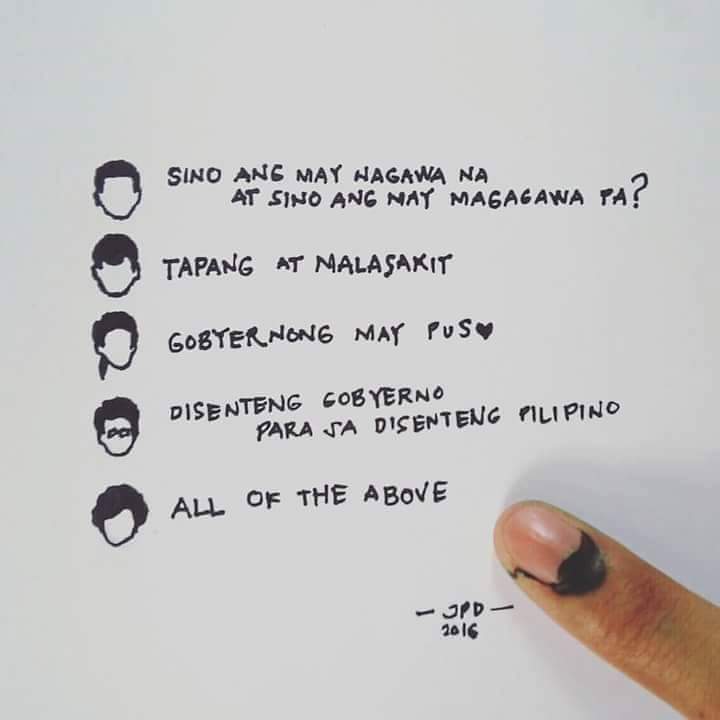 SINO ANG MAY NAGAWA NA
AT SINO ANG MAY MAGAGAWA PA?
TAPANG AT MALASAKIT
GOBYERNONG MAY PUS♥
DISENTENG GOBYERNO
PARA SA DISENTENG PILIPINO
ALL OF THE ABOVE
— JPD —
2016